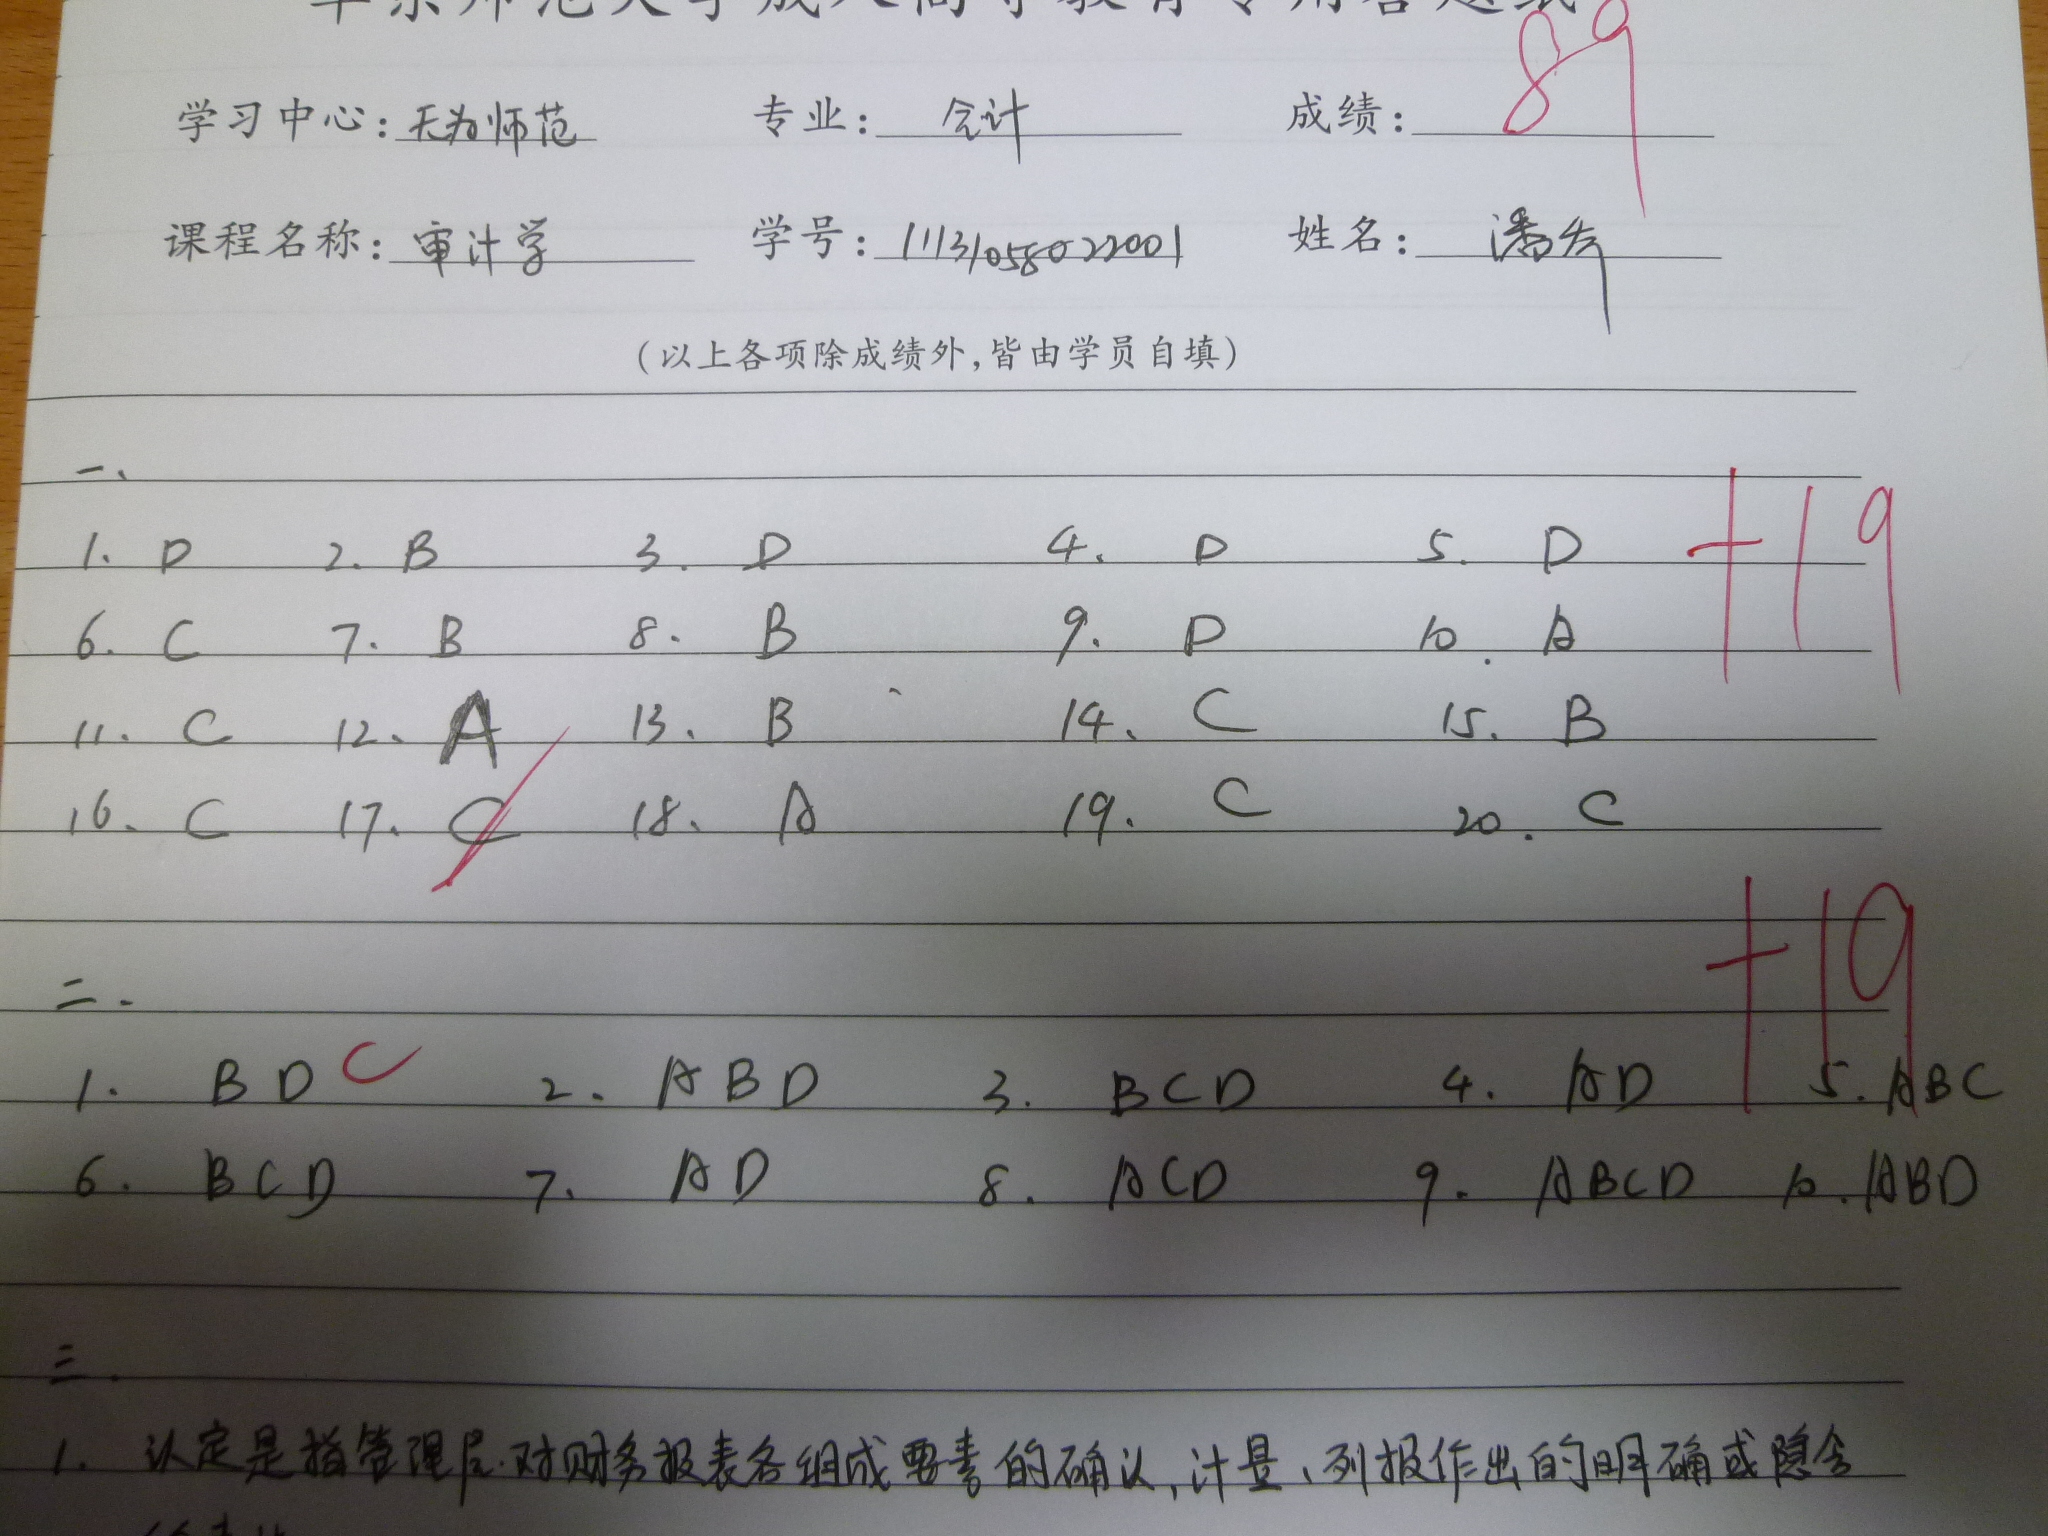 华东师范大学成人高等教育专用答题纸
学习中心:天为师范 专业:会计 成绩:89
课程名称:审计学 学号:11131058022001 姓名:潘
(以上各项除成绩外,皆由学员自填)
一、
1. D 2. B 3. D 4. D 5. D +19
6. C 7. B 8. B 9. D 10. A
11. C 12. A 13. B 14. C 15. B
16. C 17. C 18. A 19. C 20. C
二. +19
1. BD C 2. ABD 3. BCD 4. AD 5. ABC
6. BCD 7. AD 8. ACD 9. ABCD 10. ABD
三.
1. 认定是指管理层对财务报表各组成要素的确认,计量、列报作出的明确或隐含